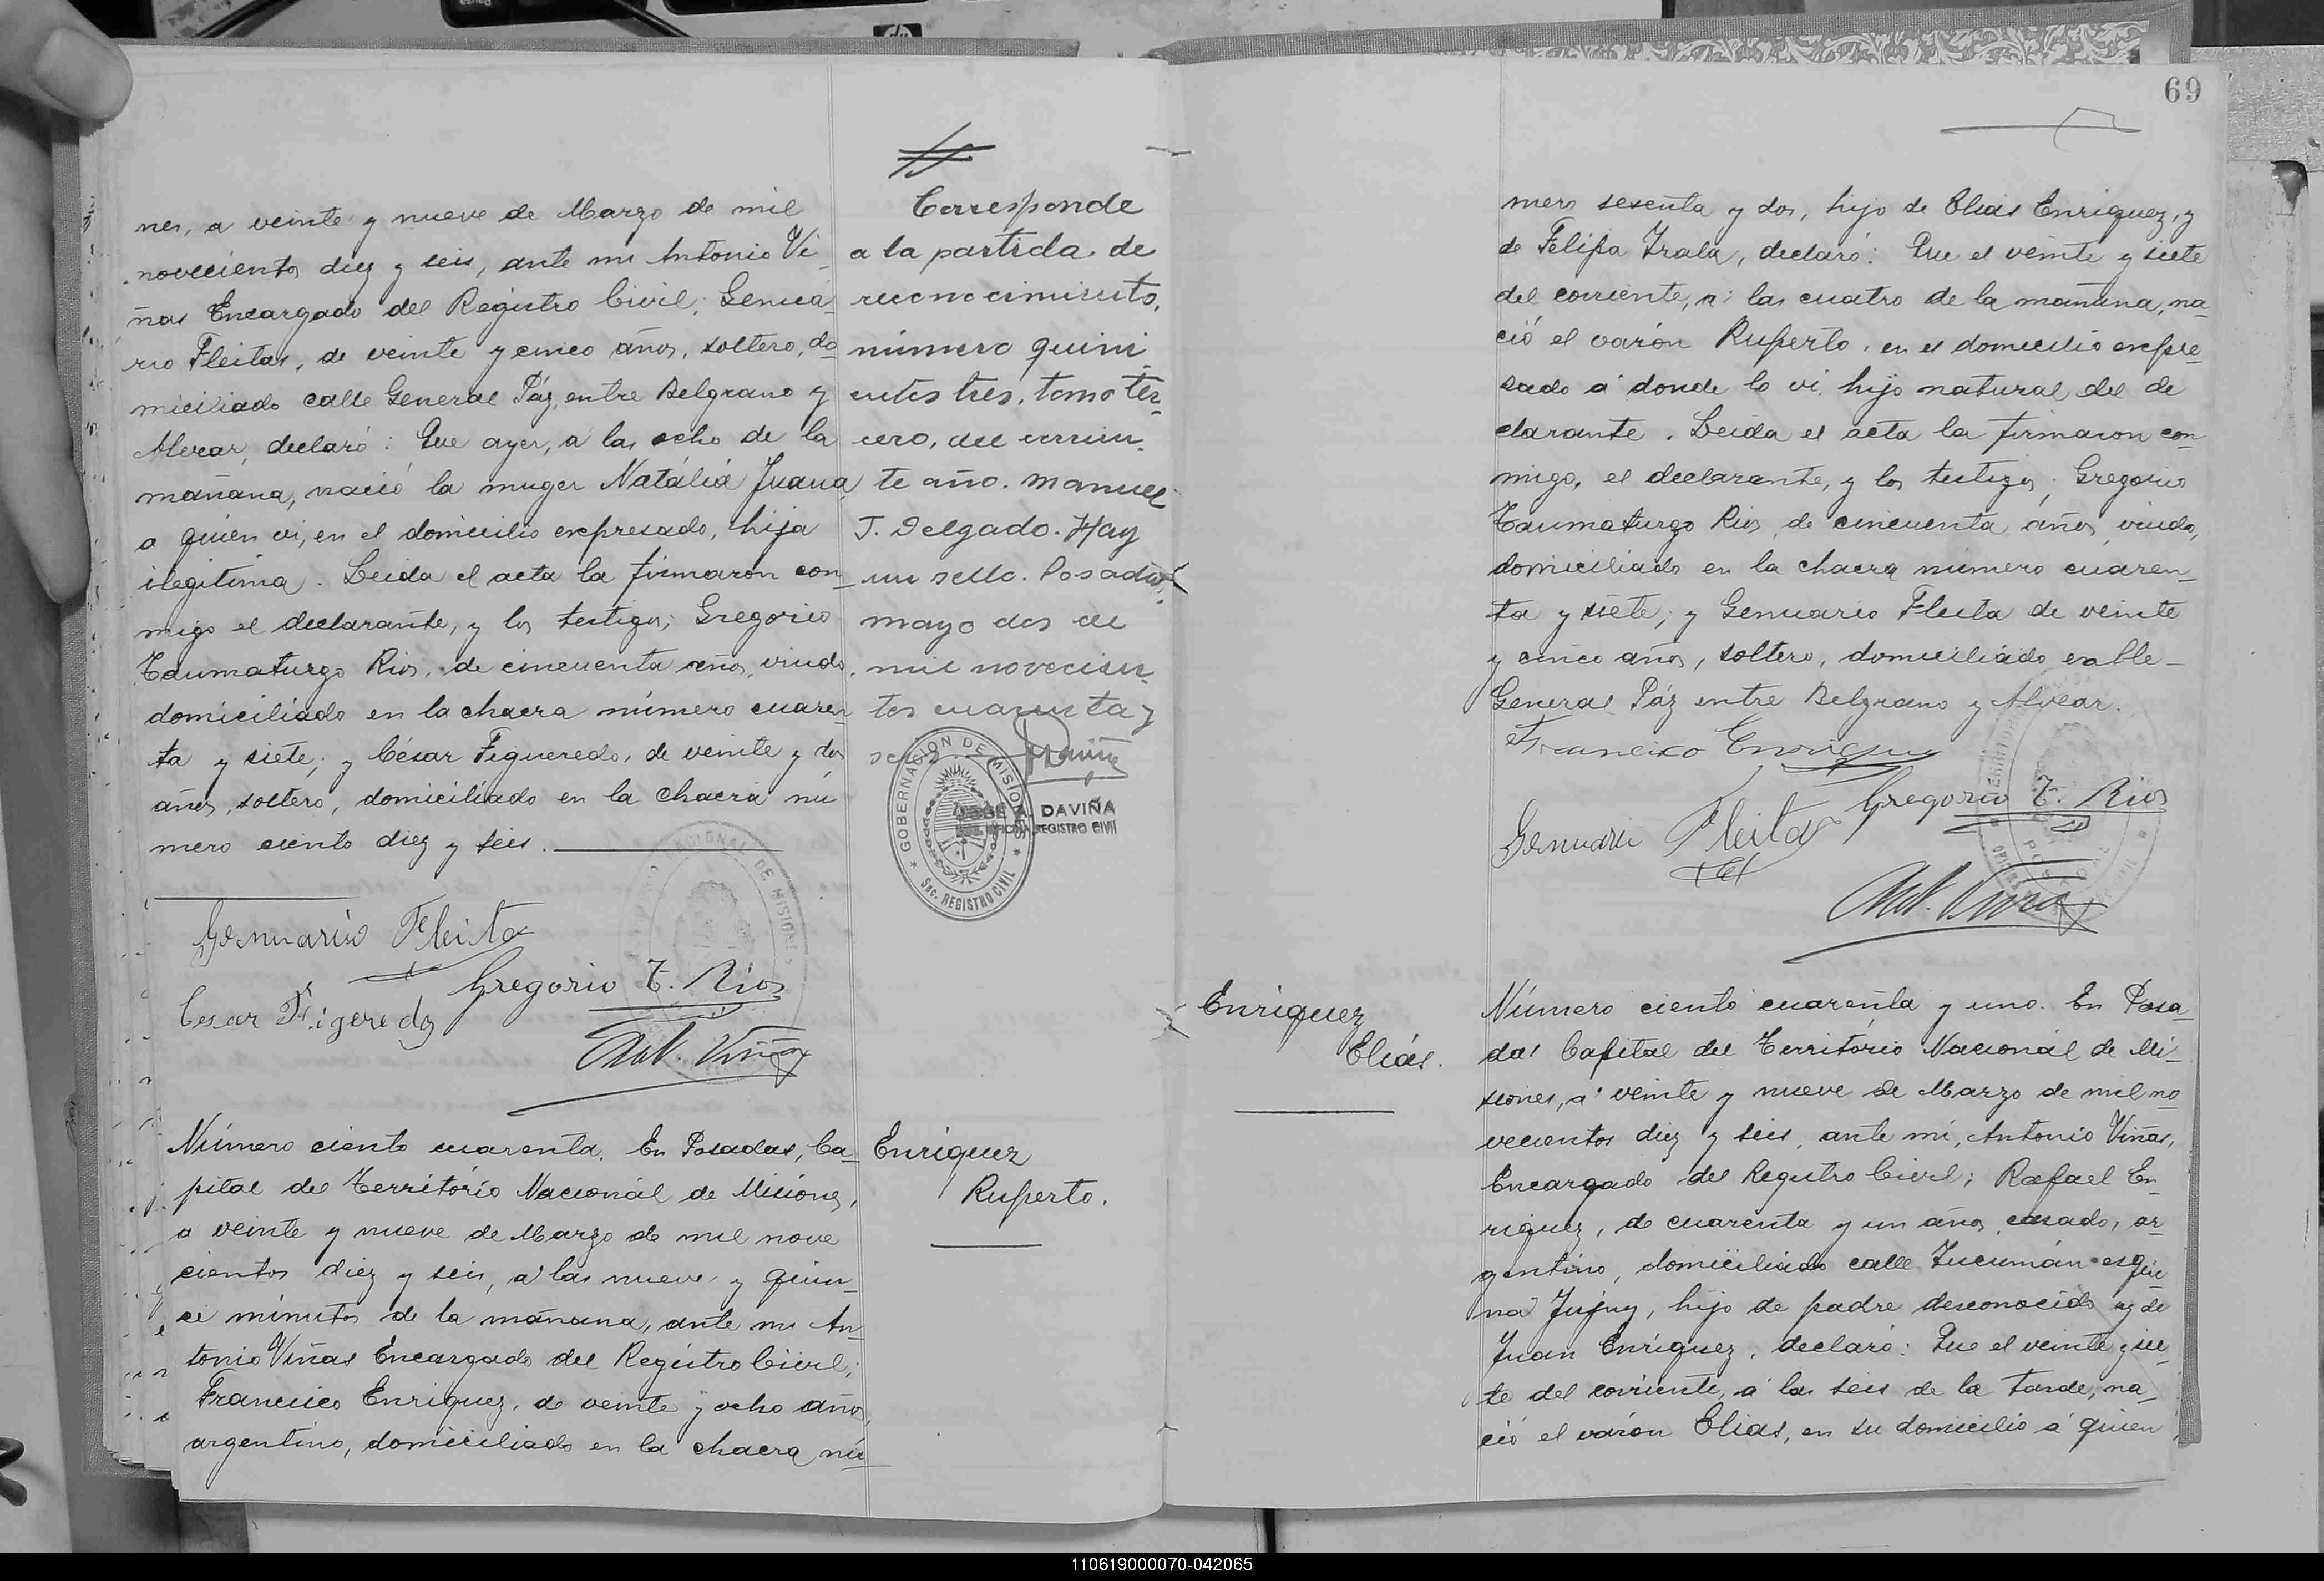 nes, a veinte y nueve de Marzo de mil
novecientos diez y seis, ante mi Antonio Vi
ñas Encargado del Registro Civil; Genua
rio Fleitas, de veinte y cinco años, soltero, do
miciliado calle General Páz, entre Belgrano y
Alvear, declaró: Que ayer, a las ocho de la
mañana, nació la muger Natália Juana
a quien vi, en el domicilio expresado, hija
ilegitima. Leida el acta la firmaron con
migo el declarante, y los testigos; Gregorio
Taumaturgo Rios, de cincuenta años, viudo,
domiciliado en la chacra número cuaren
ta y siete; y César Figueredo, de veinte y dos
años, soltero, domiciliado en la chacra nú
mero ciento diez y seis.
Genuario Fleitas
Gregorio T. Rios
Cesar Figeredo
Ant. Viñas
Corresponde
a la partida de
reconocimiento,
número quini
entos tres, tomo ter
cero, del corrien
te año. Manuel
J. Delgado. Hay
un sello. Posadas,
mayo dos de
mil novecien
tos cuarenta y
seis
GOBERNACION DE MISIONES
Sec. REGISTRO CIVIL
JORGE A. DAVIÑA
OFICINA REGISTRO CIVIL
Número ciento cuarenta. En Posadas, Ca
pital del Território Nacionál de Misiones,
a veinte y nueve de Marzo de mil nove
cientos diez y seis, a las nueve y quin
ce minutos de la mañana, ante mi An
tonio Viñas Encargado del Registro Civil;
Francisco Enriquez, de veinte y ocho años,
argentino, domiciliado en la chacra nú
Enriquez
Ruperto.
69
mero sesenta y dos, hijo de Elias Enriquez, y
de Felipa Irala, declaró: Que el veinte y siete
del corriente, a las cuatro de la mañana, na
ció el varón Ruperto, en el domicilio expre
sado a donde lo vi, hijo natural del de
clarante. Leida el acta la firmaron con
migo, el declarante, y los testigos; Gregorio
Taumaturgo Rios, de cincuenta años, viudo,
domiciliado en la chacra número cuaren
ta y siete; y Genuario Fleita de veinte
y cinco años, soltero, domiciliado calle
General Páz entre Belgrano y Alvear.
Francisco Enriquez
Gregorio T. Rios
Genuario Fleitas
Ant. Viñas
Enriquez
Elias.
Número ciento cuarenta y uno. En Posa
das Capital del Território Nacionál de Mi
siones, a veinte y nueve de Marzo de mil no
vecientos diez y seis, ante mi, Antonio Viñas,
Encargado del Registro Civil; Rafael En
riquez, de cuarenta y un años, casado, ar
gentino, domiciliado calle Tucumán esqui
na Jujuy, hijo de padre desconocido y de
Juan Enriquez, declaró: Que el veinte y sie
te del corriente, a las seis de la tarde, na
ció el varón Elias, en su domicilio a quien
110619000070-042065